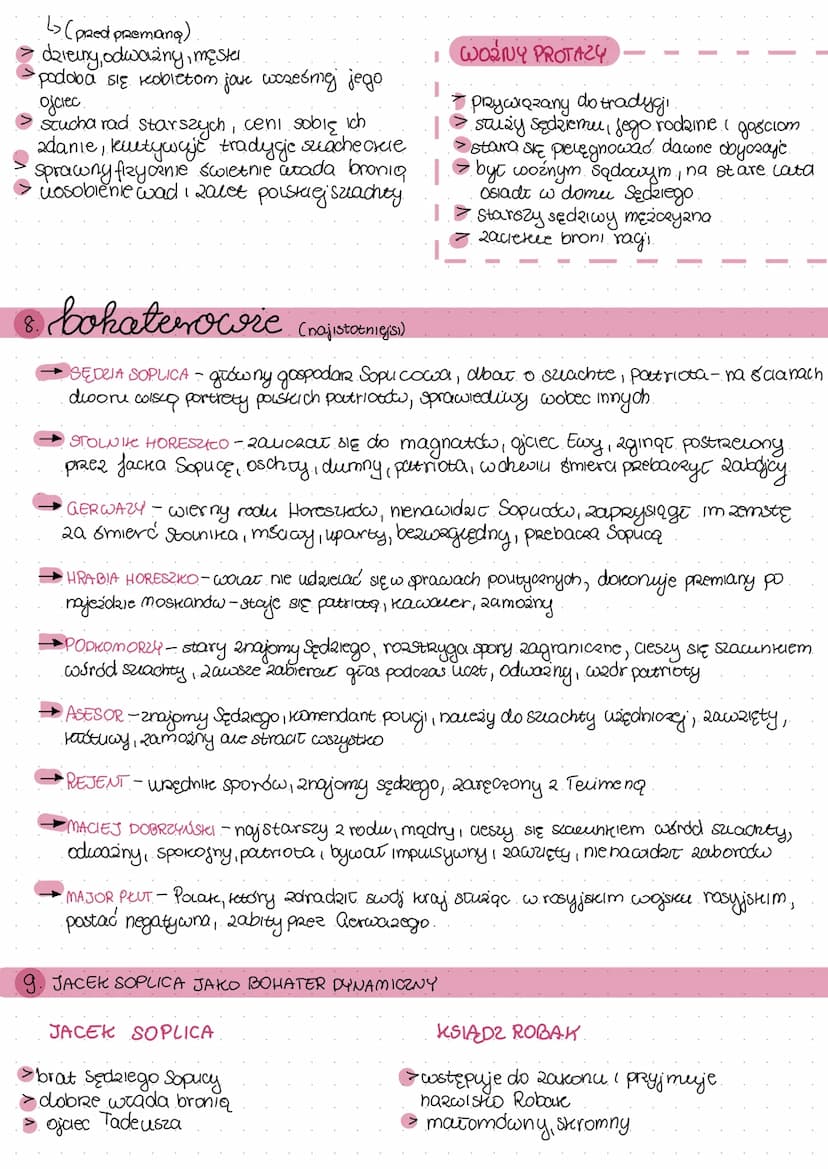 ↳ (przed przemaną)
> dzielny, odważny, męski
> podoba się kobietom jak wcześniej jego
ojciec
> słucha rad starszych, ceni sobie ich
zdanie, kultywuje tradycje szlacheckie
> sprawny fizycznie świetnie włada bronią
> uosobienie wad i zalet polskiej szlachty
WOŹNY PROTAZY
> przywiązany do tradycji
> służy sędziemu, jego rodzinie i gościom
> stara się pielęgnować dawne obyczaje
> był woźnym sądowym, na stare lata
osiadł w domu Sędziego
> starszy sędziwy mężczyzna
> zaciekle broni racji
8. bohaterowie (najistotniejsi)
→ SĘDZIA SOPLICA – główny gospodarz Soplicowa, dbał o szlachtę, patriota – na ścianach
dworu wiszą portrety polskich patriotów, sprawiedliwy wobec innych
→ STOLNIK HORESZKO – zaliczał się do magnatów, ojciec Ewy, zginął postrzelony
przez Jacka Soplicę, oschły, dumny, patriota, w chwili śmierci przebaczył zabójcy
→ GERWAZY – wierny rodu Horeszków, nienawidził Sopliców, zaprzysiągł im zemstę
za śmierć Stolnika, mściwy, uparty, bezwzględny, przebacza Soplicą
→ HRABIA HORESZKO – wolał nie udzielać się w sprawach politycznych, dokonuje przemiany po
najeździe moskalów – staje się patriotą, kawaler, zamożny
→ PODKOMORZY – stary znajomy Sędziego, rozstrzyga spory zagraniczne, cieszy się szacunkiem
wśród szlachty, zawsze zabierał głos podczas uczt, odważny, wzór patrioty
→ ASESOR – znajomy Sędziego, komendant policji, należy do szlachty urzędniczej, zawzięty,
kłótliwy, zamożny ale stracił wszystko
→ REJENT – urzędnik sporów, znajomy sędziego, zaręczony z Telimeną
→ MACIEJ DOBRZYŃSKI – najstarszy z rodu, mądry, cieszy się szacunkiem wśród szlachty,
odważny, spokojny, patriota, bywał impulsywny i zawzięty, nienawidził zaborców
→ MAJOR PŁUT – Polak, który zdradził swój kraj służąc w rosyjskim wojsku rosyjskim,
postać negatywna, zabity przez Gerwazego.
9. JACEK SOPLICA JAKO BOHATER DYNAMICZNY
JACEK SOPLICA
> brat Sędziego Soplicy
> dobrze włada bronią
> ojciec Tadeusza
KSIĄDZ ROBAK
> wstępuje do zakonu i przyjmuje
nazwisko Robak
> małomówny, skromny